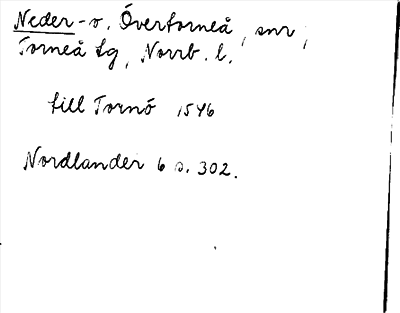 Neder-o. Övertorneå, snr,
Torneå tg, Norrb. l.
till Tornö 1546
Nordlander 6 s. 302.